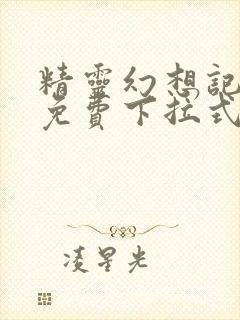 精靈幻想記
免費下拉式
凌星光